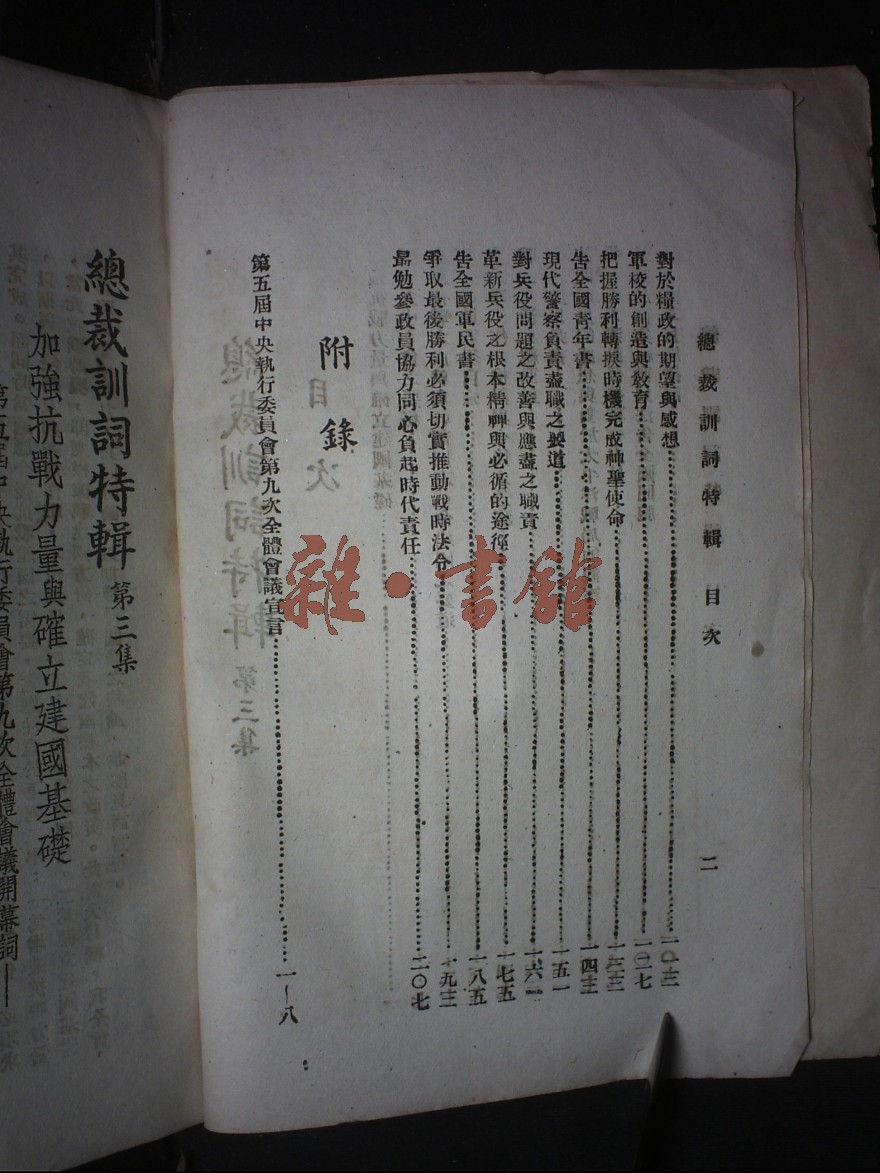 總裁訓詞特輯 目次 二
對於糧政的期望與感想 一〇三
軍校的創造與教育 一二七
把握勝利轉捩時機完成神聖使命 一三三
告全國青年書 一四三
現代警察負責盡職之要道 一五一
對兵役問題之改善與應盡之職責 一六一
革新兵役之根本精神與必循的途徑 一七五
告全國軍民書 一八五
爭取最後勝利必須切實推動戰時法令 一九三
勗勉參政員協力同心負起時代責任 二〇七
附錄
第五屆中央執行委員會第九次全體會議宣言 一-八
總裁訓詞特輯 第三集
加強抗戰力量與確立建國基礎
第五屆中央執行委員會第九次全體會議開幕詞——
雜·書館